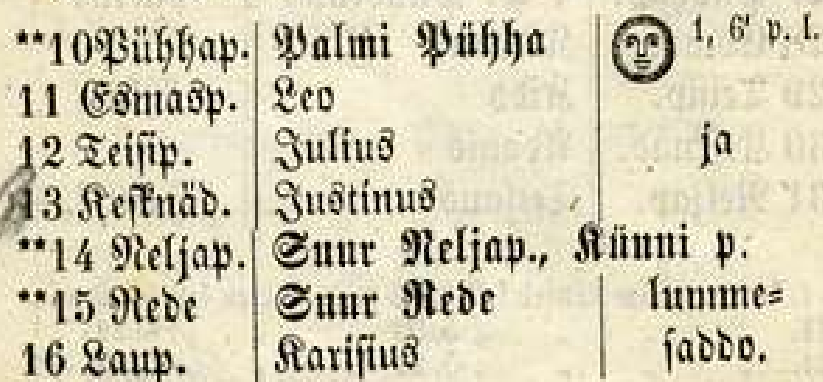 **10 Pühhap. Palmi Pühha 1, 6' p. l.
11 Esmasp. Leo
12 Teisip. Julius ja
13 Kesknäd. Justinus
**14 Neljap. Suur Neljap., Künni p.
**15 Rede Suur Rede lumme-
16 Laup. Karisius saddo.